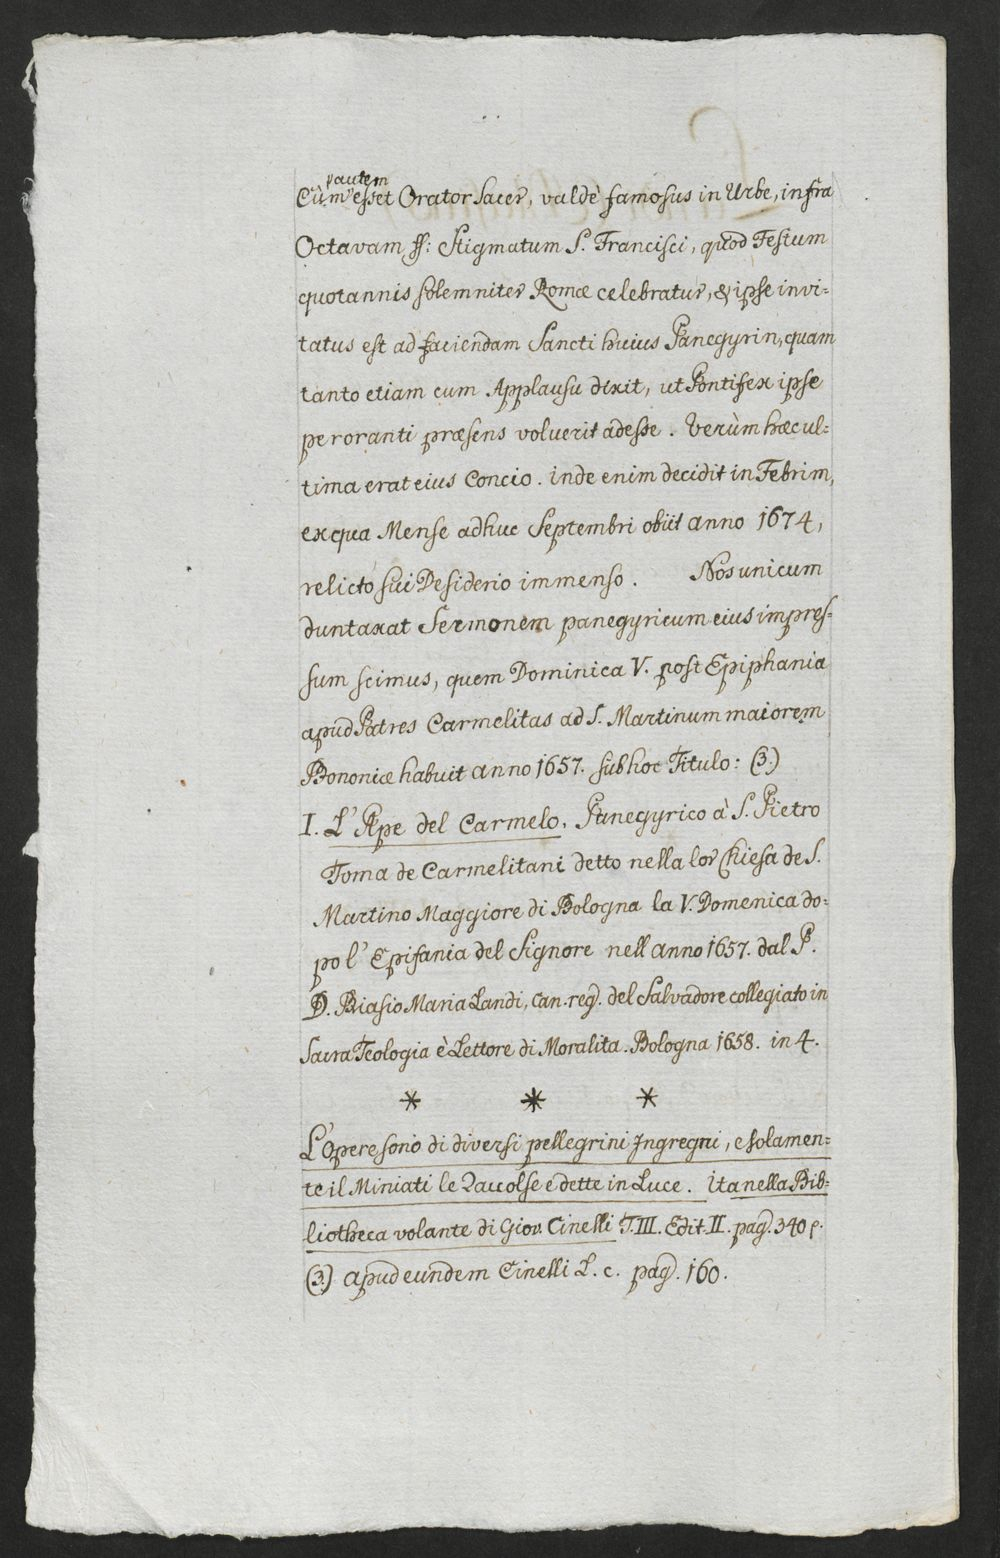 autem
Cùm esset Orator Sacer, valdè famosus in Urbe, infra
Octavam ss: Stigmatum S. Francisci, quod Festum
quotannis solemniter Romæ celebratur, & ipse invi=
tatus est ad faciendam Sancti huius Panegyrin, quam
tanto etiam cum Applausu dixit, ut Pontifex ipse
peroranti præsens voluerit adesse. Verùm hæc ul=
tima erat eius Concio. inde enim decidit in Febrim,
ex qua Mense adhuc Septembri obiit anno 1674,
relicto sui Desiderio immenso. Nos unicum
duntaxat Sermonem panegyricum eius impres=
sum scimus, quem Dominica V. post Epiphania
apud Patres Carmelitas ad S. Martinum maiorem
Bononiæ habuit anno 1657. sub hoc Titulo: (3.)
I. L'Ape del Carmelo. Panegyrico à S. Pietro
Toma de Carmelitani detto nella lor Chiesa de S.
Martino Maggiore di Bologna la V. Domenica do=
po l' Epifania del Signore nell anno 1657. dal P.
D. Biasio Maria Landi, Can. reg. del Salvadore collegiato in
Sacra Teologia è Lettore di Moralita. Bologna 1658. in 4.
* * *
L'Opere sono di diversi pellegrini Ingregni, e solamen=
te il Miniati le Raccolse e dette in Luce. ita nella Bib=
liotheca volante di Giov. Cinelli T. III. Edit. II. pag. 340
(3.) apud eundem Cinelli L. c. pag. 160.